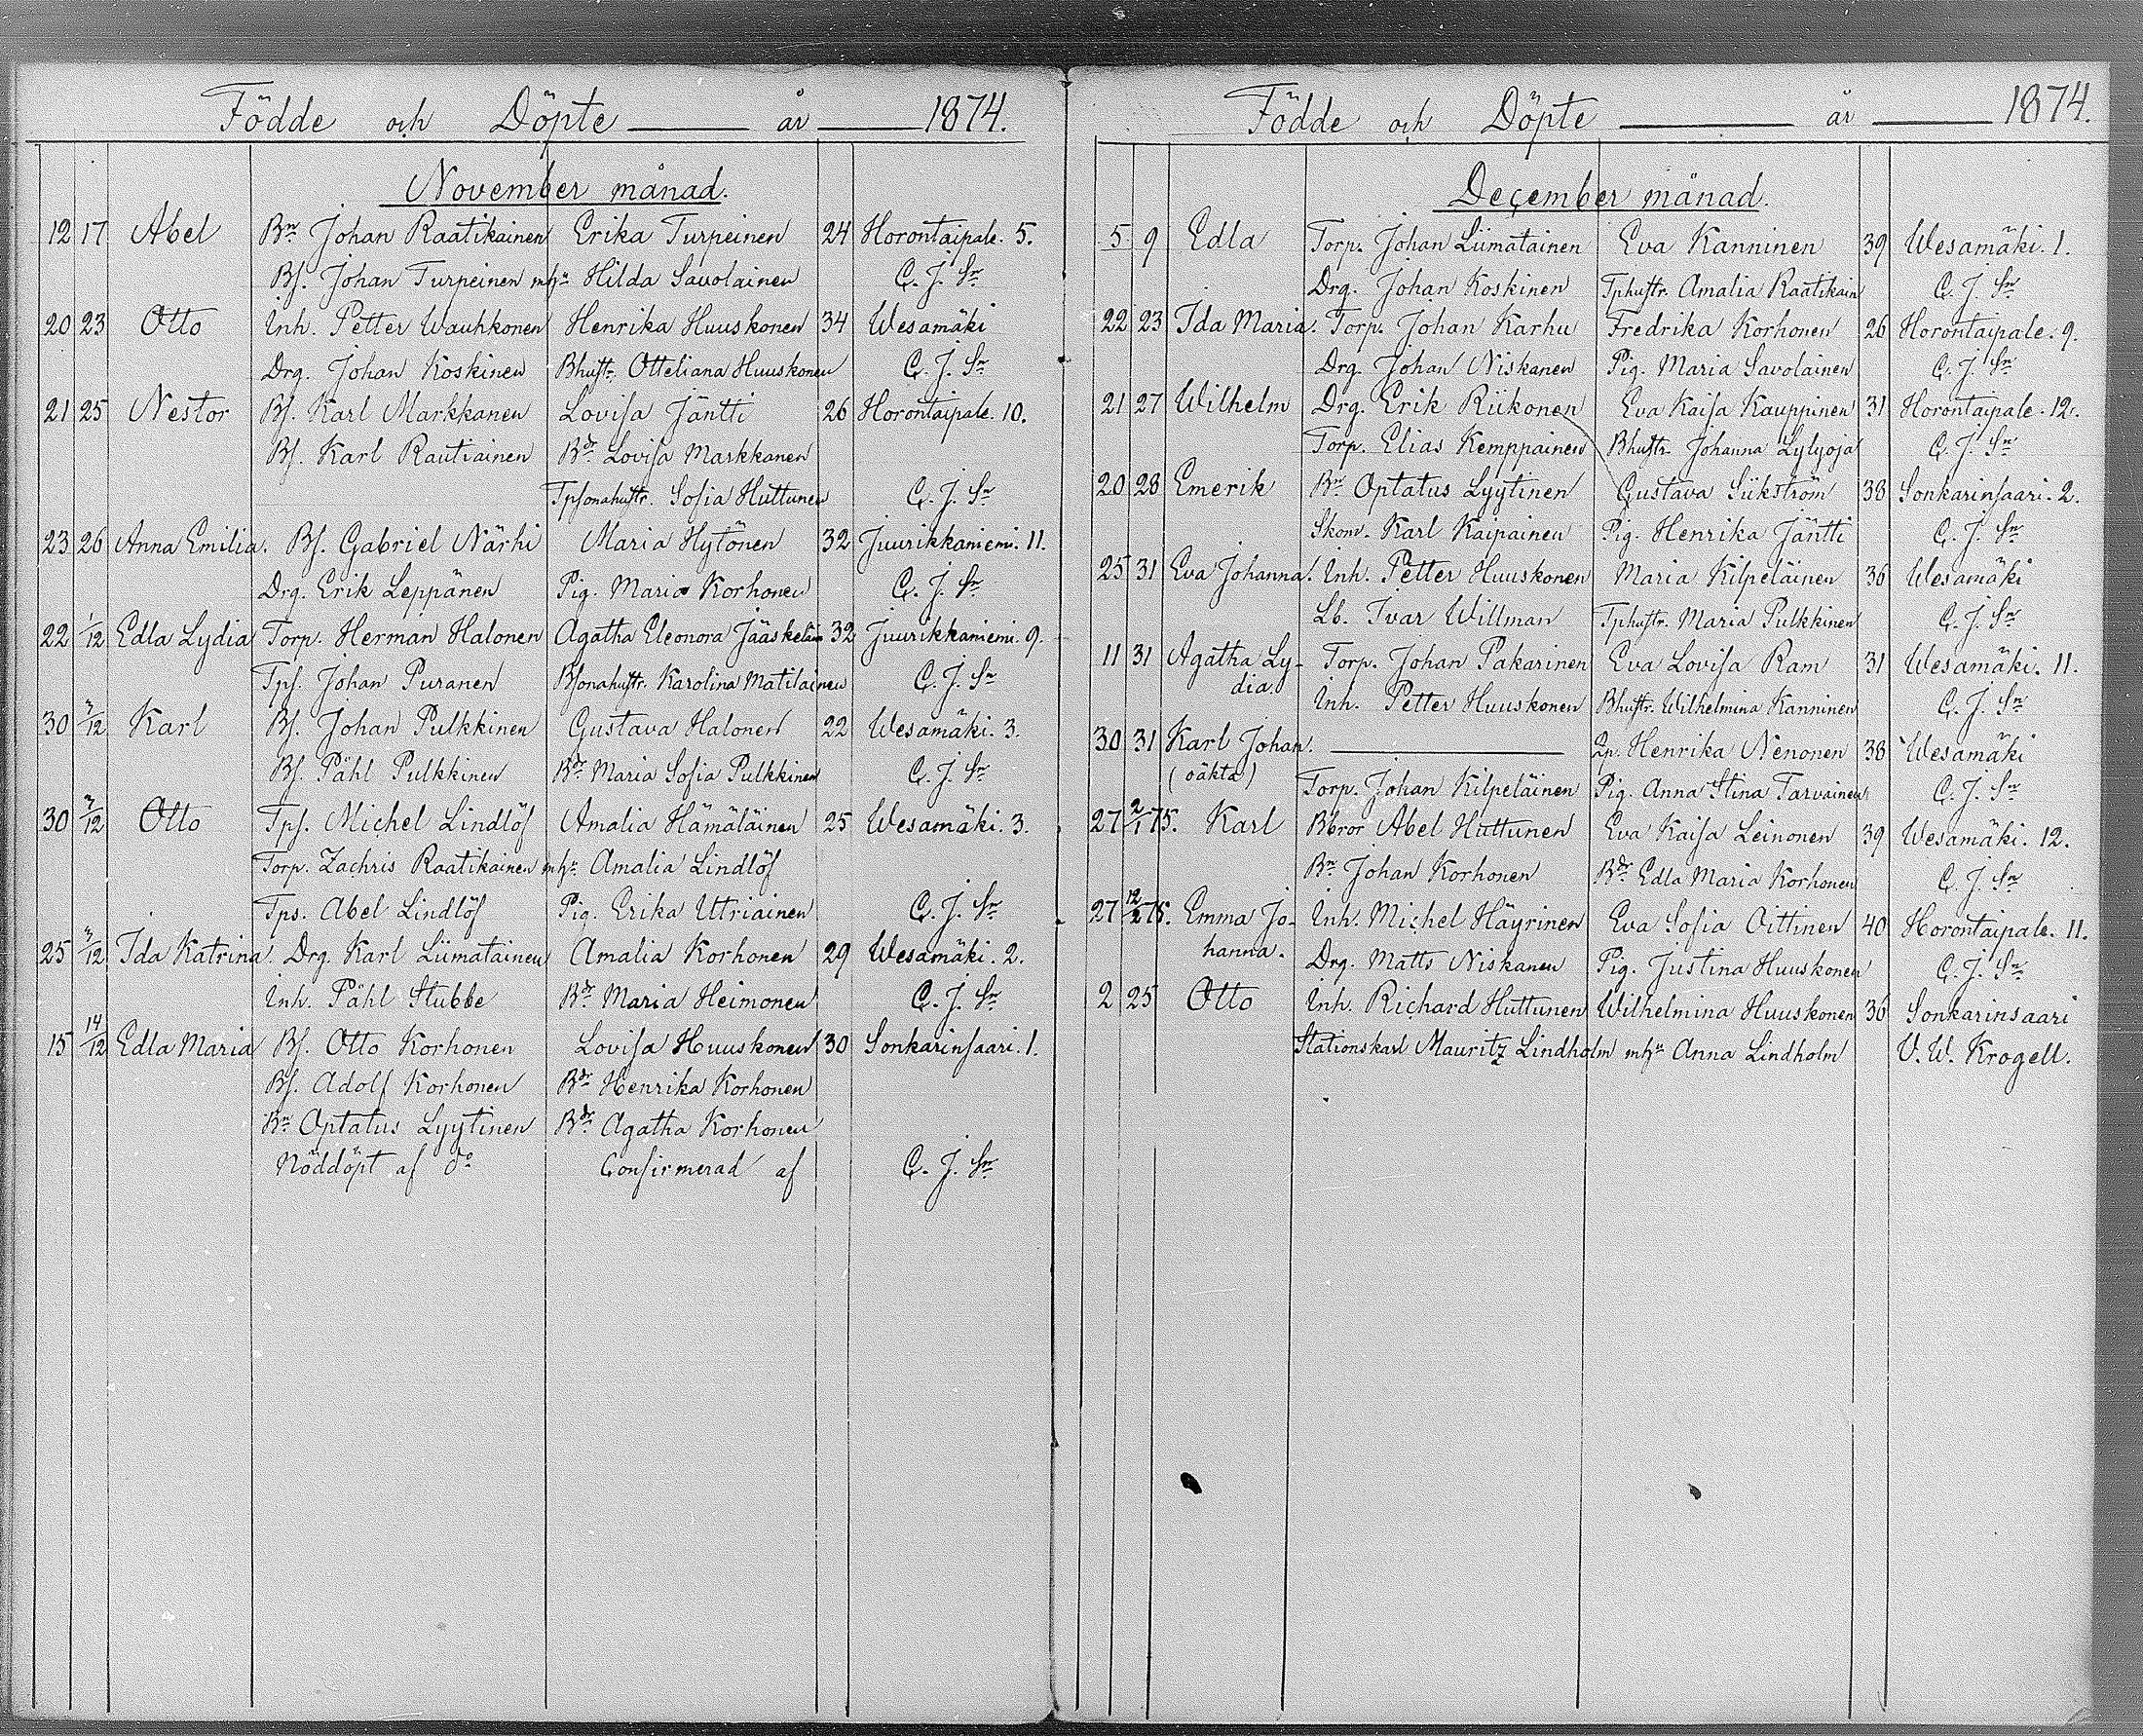 Födde och Döpte år 1874.
November månad.
12 17 Abel Bn Johan Raatikainen Erika Turpeinen 24 Horontaipale. 5.
Bs. Johan Turpeinen mhu Hilda Savolainen C. J. Sn
20 23 Otto Inh. Petter Wauhkonen Henrika Huuskonen 34 Wesamäki
Drg. Johan Koskinen Bhustr. Otteliana Huuskonen C. J. Sn
21 25 Nestor Bs. Karl Markkanen Lovisa Jäntti 26 Horontaipale. 10.
Bs. Karl Rautiainen Bdr Lovisa Markkanen
Tpsonahustr. Sofia Huttunen C. J. Sn
23 26 Anna Emilia. Bs. Gabriel Närhi Maria Hytönen 32 Juurikkaniemi. 11.
Drg. Erik Leppänen Pig. Maria Korhonen C. J. Sn
22 1/12 Edla Lydia Torp. Herman Halonen Agatha Eleonora Jääskeläin 32 Juurikkaniemi. 9.
Tps. Johan Puranen Bsonahustr. Karolina Matilainen C. J. Sn
30 3/12 Karl Bs. Johan Pulkkinen Gustava Halonen 22 Wesamäki. 3.
Bs. Påhl Pulkkinen Bdr Maria Sofia Pulkkinen C. J. Sn
30 3/12 Otto Tps. Michel Lindlöf Amalia Hämäläinen 25 Wesamäki. 3.
Torp. Zachris Raatikainen mhu Amalia Lindlöf
Tps. Abel Lindlöf Pig. Erika Utriainen C. J. Sn
25 3/12 Ida Katrina. Drg. Karl Liimatainen Amalia Korhonen 29 Wesamäki. 2.
Inh. Påhl Stubbe Bdr Maria Heimonen C. J. Sn
15 14/12 Edla Maria Bs. Otto Korhonen Lovisa Huuskonen 30 Sonkarinsaari. 1.
Bs. Adolf Korhonen Bdr Henrika Korhonen
Bn Optatus Lyytinen Bdr Agatha Korhonen
Nöddöpt af do Confirmerad af C. J. Sn
Födde och Döpte år 1874.
December månad.
5 9 Edla Torp. Johan Liimatainen Eva Kanninen 39 Wesamäki. 1.
Drg. Johan Koskinen Tphustr. Amalia Raatikain C. J. Sn
22 23 Ida Maria. Torp. Johan Karhu Fredrika Korhonen 26 Horontaipale. 9.
Drg. Johan Niskanen Pig. Maria Savolainen C. J. Sn
21 27 Wilhelm Drg. Erik Riikonen Eva Kaisa Kauppinen 31 Horontaipale. 12.
Torp. Elias Kemppainen Bhustr. Johanna Lylyoja C. J. Sn
20 28 Emerik Bn Optatus Lyytinen Gustava Siikström 38 Sonkarinsaari. 2.
Skom. Karl Kaipainen Pig. Henrika Jäntti C. J. Sn
25 31 Eva Johanna. Inh. Petter Huuskonen Maria Kilpeläinen 36 Wesamäki
Lb. Ivar Willman Tphustr. Maria Pulkkinen C. J. Sn
11 31 Agatha Ly- Torp. Johan Pakarinen Eva Lovisa Ram 31 Wesamäki. 11.
dia. Inh. Petter Huuskonen Bhustr. Wilhelmina Kanninen C. J. Sn
30 31 Karl Johan. Qp. Henrika Nenonen 38 Wesamäki
(oäkta) Torp. Johan Kilpeläinen Pig. Anna Stina Tarvainen C. J. Sn
27 2/1 75. Karl Bbror Abel Huttunen Eva Kaisa Leinonen 39 Wesamäki. 12.
Bn Johan Korhonen Bdr Edla Maria Korhonen C. J. Sn
27 12/2 75. Emma Jo- Inh. Michel Häyrinen Eva Sofia Oittinen 40 Horontaipale. 11.
hanna. Drg. Matts Niskanen Pig. Justina Huuskonen C. J. Sn
2 25 Otto Inh. Richard Huttunen Wilhelmina Huuskonen 36 Sonkarinsaari
Stationskarl Mauritz Lindholm mhu Anna Lindholm V. W. Krogell.